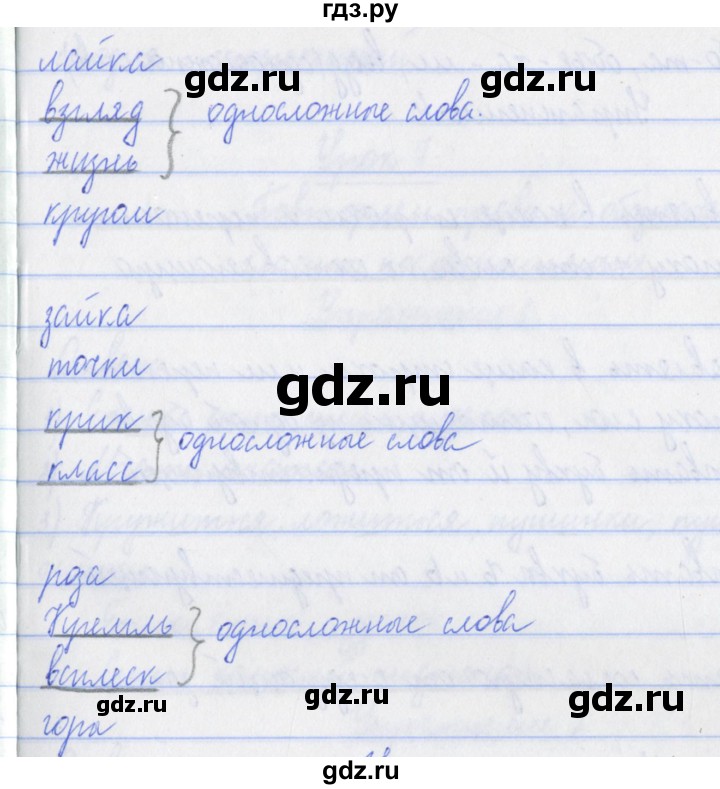 гдз.ру
лайка
gdz.ru gdz.ru
взгляд
жизнь
односложные слова.
кругом
зайка
точки
gdz.ru
крик
класс
односложные слова
роза
Кремль
всплеск
односложные слова
gdz.ru gdz.ru gdz.ru
гора
gdz.ru